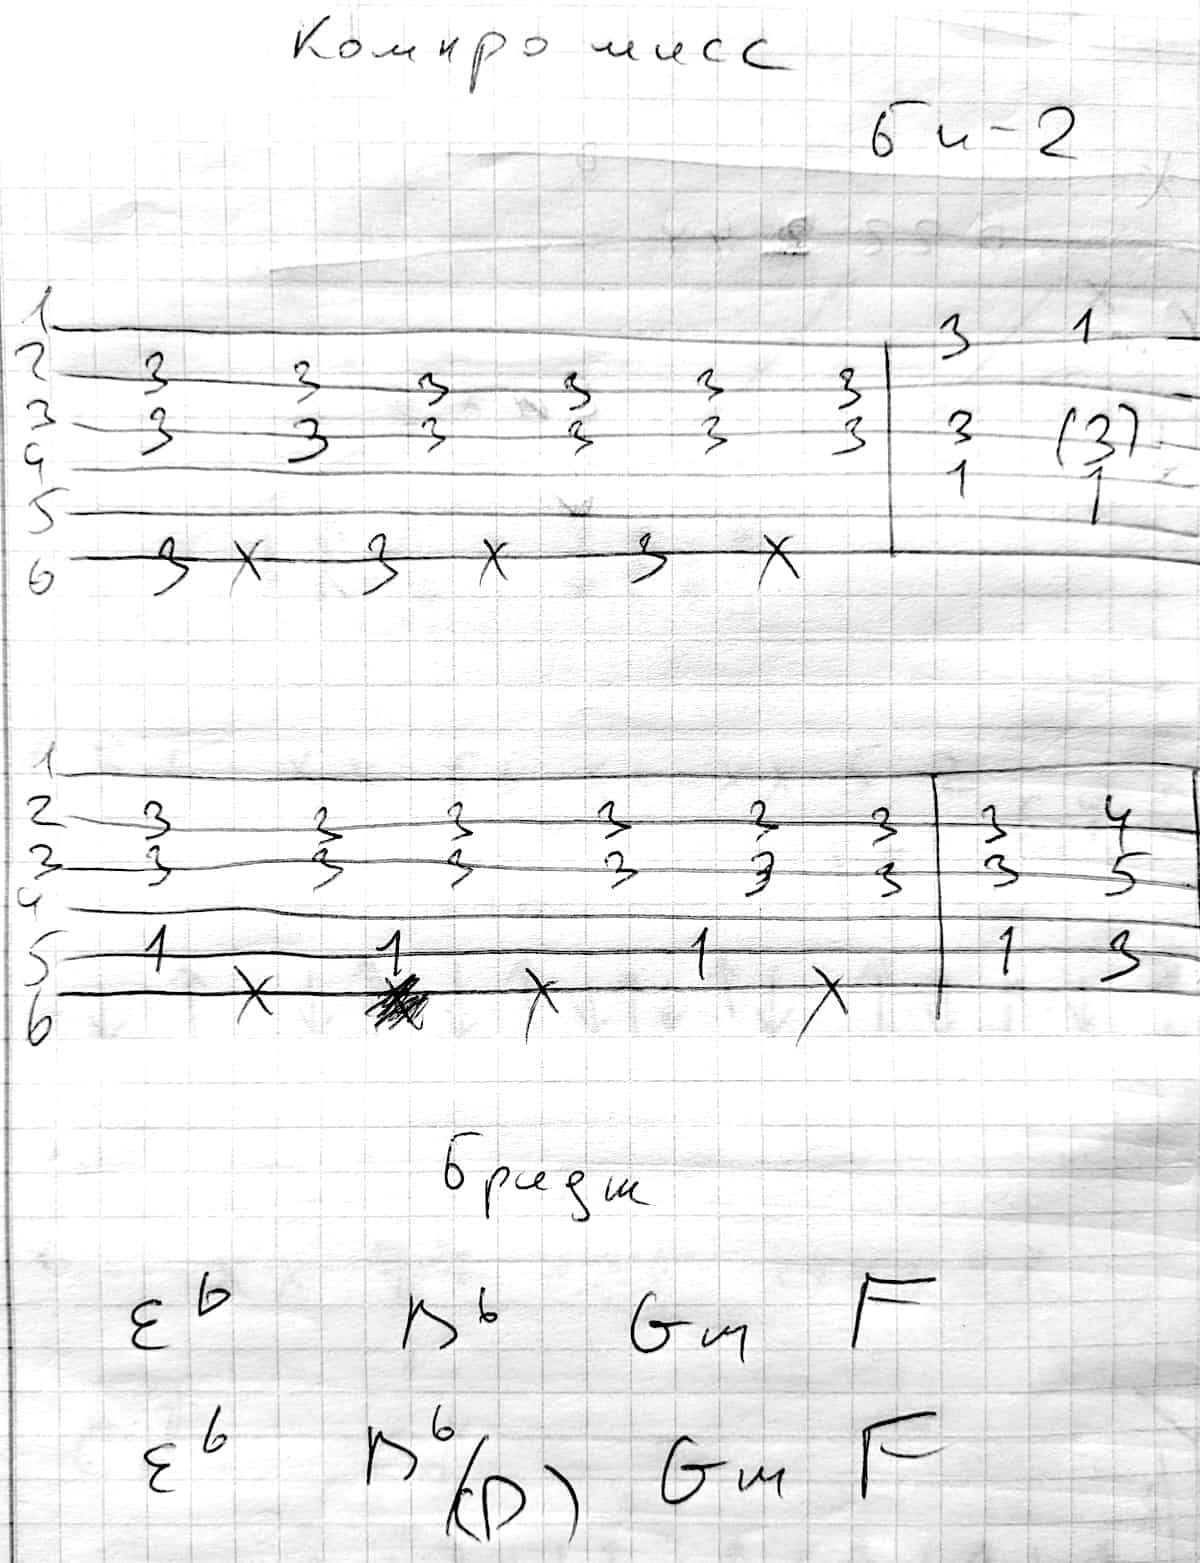 Компромисс
Би-2
1 3 1
2 3 3 3 3 3 3
3 3 3 3 3 3 3 3 (3)
4 1 1
5
6 3 X 3 X 3 X
1
2 3 3 3 3 3 3 3 4
3 3 3 3 3 3 3 3 5
4
5 1 1 1 1 3
6 X X X
Бридж
Eb Bb Gm F
Eb Bb (D) Gm F